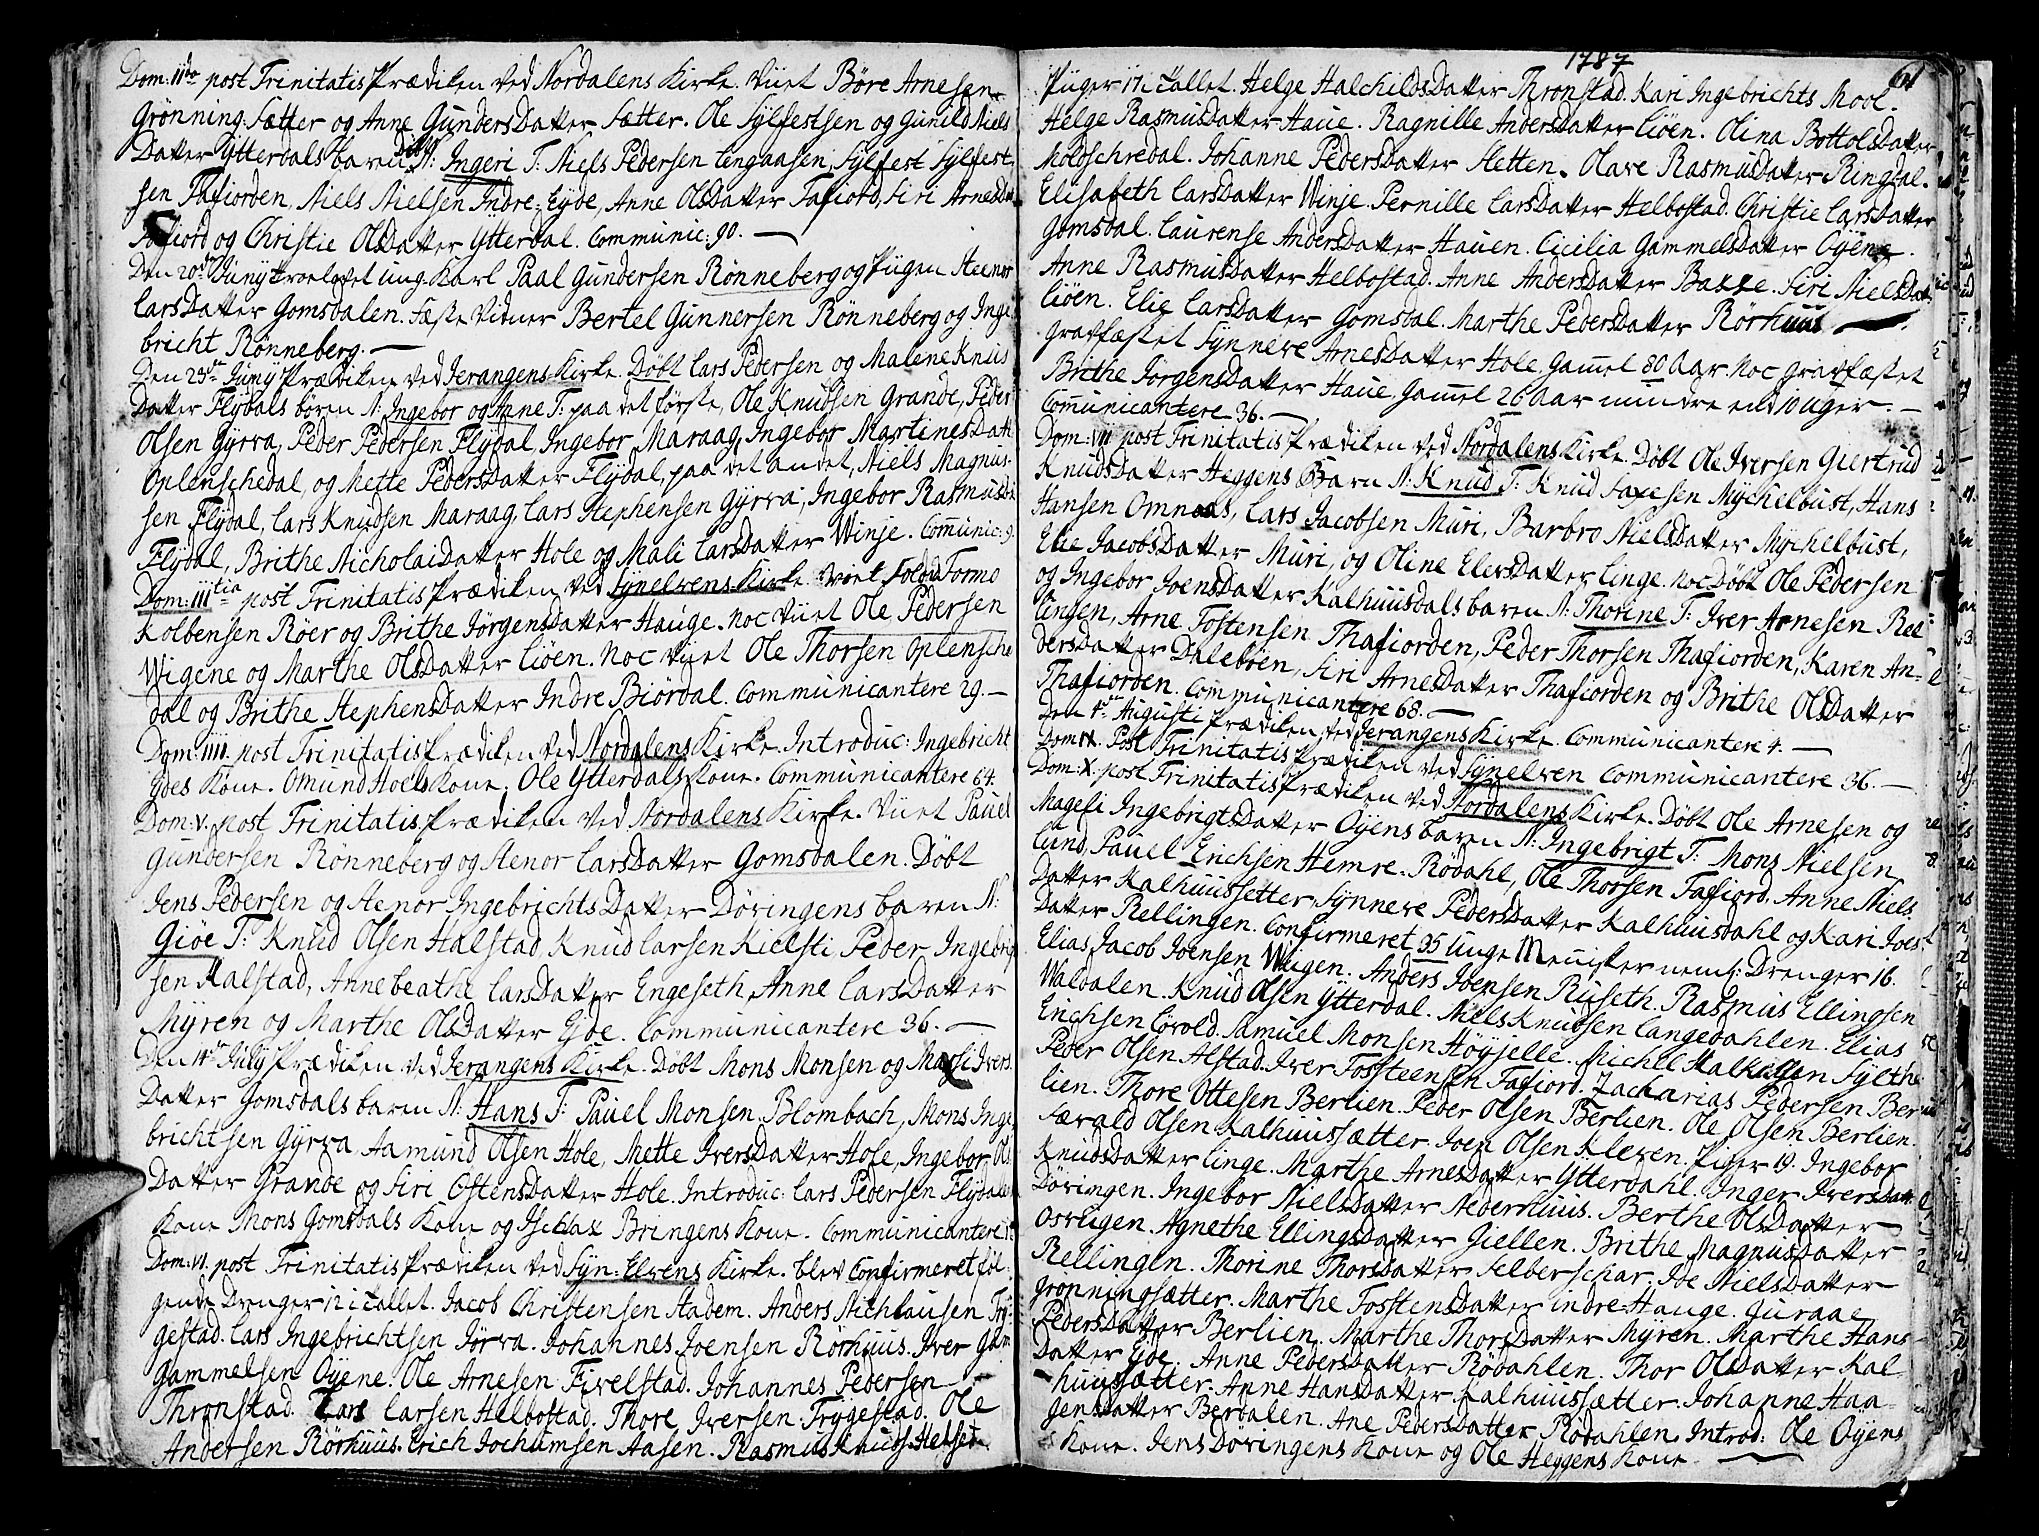 Dom: IIda post Trinitatis Prædiken ved Nordalens Kirke. Viiet Børe Arnesen
Grønning Sætter og Anne GundersDatter Sætter. Ole Sylfestsen og Gunild Niels
Datter Ytterdals barn Døbt N: Ingeri T: Niels Pedersen Lingaasen, Sylfest Sylfest-
sen Tafiorden, Niels Nielsen Indre-Eyde, Anne OlsDatter Tafiord, Siri ArnesDr
Tafiord og Christie OlsDatter Ytterdal. Communic: 90.
Den 20de Juny trolovet ung Karl Paal Gundersen Rønneberg og Pigen Steenor
LarsDatter Gomsdalen. Fæste Vidner Bertel Gunnersen Rønneberg og Inge
bricht Rønneberg.
Den 23de Juny Prædiken ved Jerangens Kirke. Døbt Lars Pedersen og Malene Knuds
Datter Flydals børen N: Ingebor og Anne T: paa det første, Ole Knudsen Grande, Peder
Olsen Gyrra, Peder Pedersen Flydal, Ingebor Maraag, Ingebor MartinesDatt
Oplenschedal, og Mette PedersDatter Flydal, paa det andet, Niels Magnus-
sen Flydal, Lars Knudsen Maraag, Lars Stephensen Gyrra, Ingebor RasmusDr
Flydal, Brithe NicholaiDatter Hole og Mali LarsDatter Winje. Communic: 9.
Dom: IIItia post Trinitatis Prædiken ved Synelvens Kirke viiet Tormo
Kolbensen Røer og Brithe JørgensDatter Hauge. noc Viiet Ole Pedersen
Wigene og Marthe OlsDatter Liøen. Noc Viiet Ole Thorsen Oplensche
dal og Brithe StephensDatter Indre Biørdal. Communicantere 29.
Dom: IIII. post Trinitatis Prædiken ved Nordalens Kirke. Introduc: Ingebricht
Ydes Kone. Omund Hoels Kone. Ole Ytterdals Kone. Communicantere 64.
Dom: V. post Trinitatis Prædiken ved Nordalens Kirke. Viiet Pauel
Gundersen Rønneberg og Stenor LarsDatter Gomsdalen. Døbt
Jens Pedersen og Stenor IngebrichtsDatter Døvingens baren N:
Giøe T: Knud Olsen Halstad, Knud Larsen Kielsti, Peder Ingebrig
sen Halstad, Anne beathe LarsDatter Engeseth, Anne LarsDatter
Myren og Marthe OlsDatter Eide. Communicantere 36.
Den 14de July Prædiken ved Jerangens Kirke. Døbt Mons Monsen og Massi Ivers
Datter Gomsdals baren N: Hans T: Pauel Monsen Blombach, Mons Inge
brichtsen Gyrra, Aamund Olsen Hole, Mette IversDatter Hole, Ingebor Ols
Datter Grande og Siri OstensDatter Hole. Introduc: Lars Pedersen Flydals
Kone Mons Gomsdals Kone og Isehlax Bringens Kone. Communicantere
Dom: VI. post Trinitatis Prædiken ved Syn-Elvens Kirke. blev Confirmeret føl-
gende Drenger 12 i tallet. Jacob Christensen Stadem. Anders Nichlausen Try-
gestad. Lars Ingebrichtsen Jørra. Johannes Joensen Rørhuus. Iver Gam
Gammelsen Øyene. Ole Arnesen Fivelstad. Johannes Pedersen
Thronstad. Lars Larsen Helbostad. Thore Iversen Trygestad. Ole
Andersen Rørhuus. Erich Jochumsen Aasen. Rasmus Knuds: Helset
1787
61
Piiger 17 i tallet. Helge HalchildsDatter Thronstad. Kari Ingebrichts Mool.
Helge RasmusDatter Haue. Ragnille AndersDatter Liøen. Olina BottolsDatter
Moldschredal. Johanne PedersDatter Sletten. Olave RasmusDatter Ringdal.
Elisabeth LarsDatter Winje. Pernille LarsDatter Helbostad. Christie LarsDatter
Gomsdal. Laurense AndersDatter Hauen. Cicilia GammelsDatter Øyene.
Anne RasmusDatter Helbostad. Anne AndersDatter Bakke. Siri NielsDatt
Liøen. Elie LarsDatter Gomsdal. Marthe PedersDatter Rørhuus
Gravfæstet Synneve ArnesDatter Hole, Gamel 80 Aar. Noc Gravfæstet
Brithe JørgensDatter Haue, Gamel 26 Aar mindre end 10 Uger.
Communicantere 36.
Dom: VII post Trinitatis Prædiken ved Nordalens Kirke. Døbt Ole Iversen Giertrud
KnudsDatter Heggens Barn N: Knud T: Knud Saxesen Mychelbust, Hans
Hansen Omnaas, Lars Jacobsen Muri, Barbro NielsDatter Mychelbust,
Elie JacobsDatter Muri, og Oline ElersDatter Linge. noc Døbt Ole Pedersen
og Ingebor JoensDatter Kalhuusdals baren N: Thorine T: Iver Arnesen Rel
lingen, Arne Tostensen Thafiorden, Peder Thorsen Thafiorden, Karen An-
dersDatter Dalebøen, Siri ArnesDatter Thafiorden og Brithe OlsDatter
Thafiorden. Communicantere 68.
Den 1ste Augusti Prædiken ved Jerangens Kirke. Communicantere 4.
Dom IX. Post Trinitatis Prædiken ved Synelven Communicantere 36.
Dom: X. post Trinitatis Prædiken ved Nordalens Kirke. Døbt Ole Arnesen og
Magesi IngebrigtsDatter Øyens baren N: Ingebrigt T: Mons Nielsen
Lund, Pauel Erichsen Hemre. Rødahl, Ole Thorsen Tafiord. Anne Niels
Datter Kalhuussetter, Synneve PedersDatter Kalhuusdahl og Kari Joes
Datter Rellingen. Confirmeret 35 unge Mennisker neml: Drenger 16.
Elias Jacob Joensen Wiigen. Anders Joensen Ruseth. Rasmus Ellingsen
Waldalen. Knud Olsen Ytterdal. Niels Knudsen Langedahlen. Elias
Erichsen Lovold. Samuel Monsen Høyjelle. Michel Halkildsen Sylthe
Peder Olsen Alstad. Iver Tossteensen Tafiord. Zacharias Pedersen Ber
lien. Thore Ottesen Berlien. Peder Olsen Berlien. Ole Olsen Berlien.
Særald Olsen Kalhuussætter. Joen Olsen Kleven. Piger 19. Ingebor
KnudsDatter Linge. Marthe ArnesDatter Ytterdahl. Inger IversDatt
Døvingen. Ingebor NielsDatter Nederhuus. Berthe OlsDatter
Osvigen. Agnethe EllingsDatter Giellen. Brithe MagnusDatter
Rellingen. Thorine ThorsDatter Selberschar. Ide NielsDatter
Grønningsætter. Marthe TosstensDatter indre-Hauge. Guraae
PedersDatter Berlien. Marthe ThorsDatter Myren. Marthe Hans
Datter Eide. Anne PedersDatter Rødahlen. Thor OlsDatter Kal
huussætter. Anne HansDatter Kalhuussætter. Johanne Haa-
gensDatter Berdalen. Ane PedersDatter Rødahlen. Introd: Ole Øyens
Kone. Jens Døvingens Kone og Ole Heggens Kone